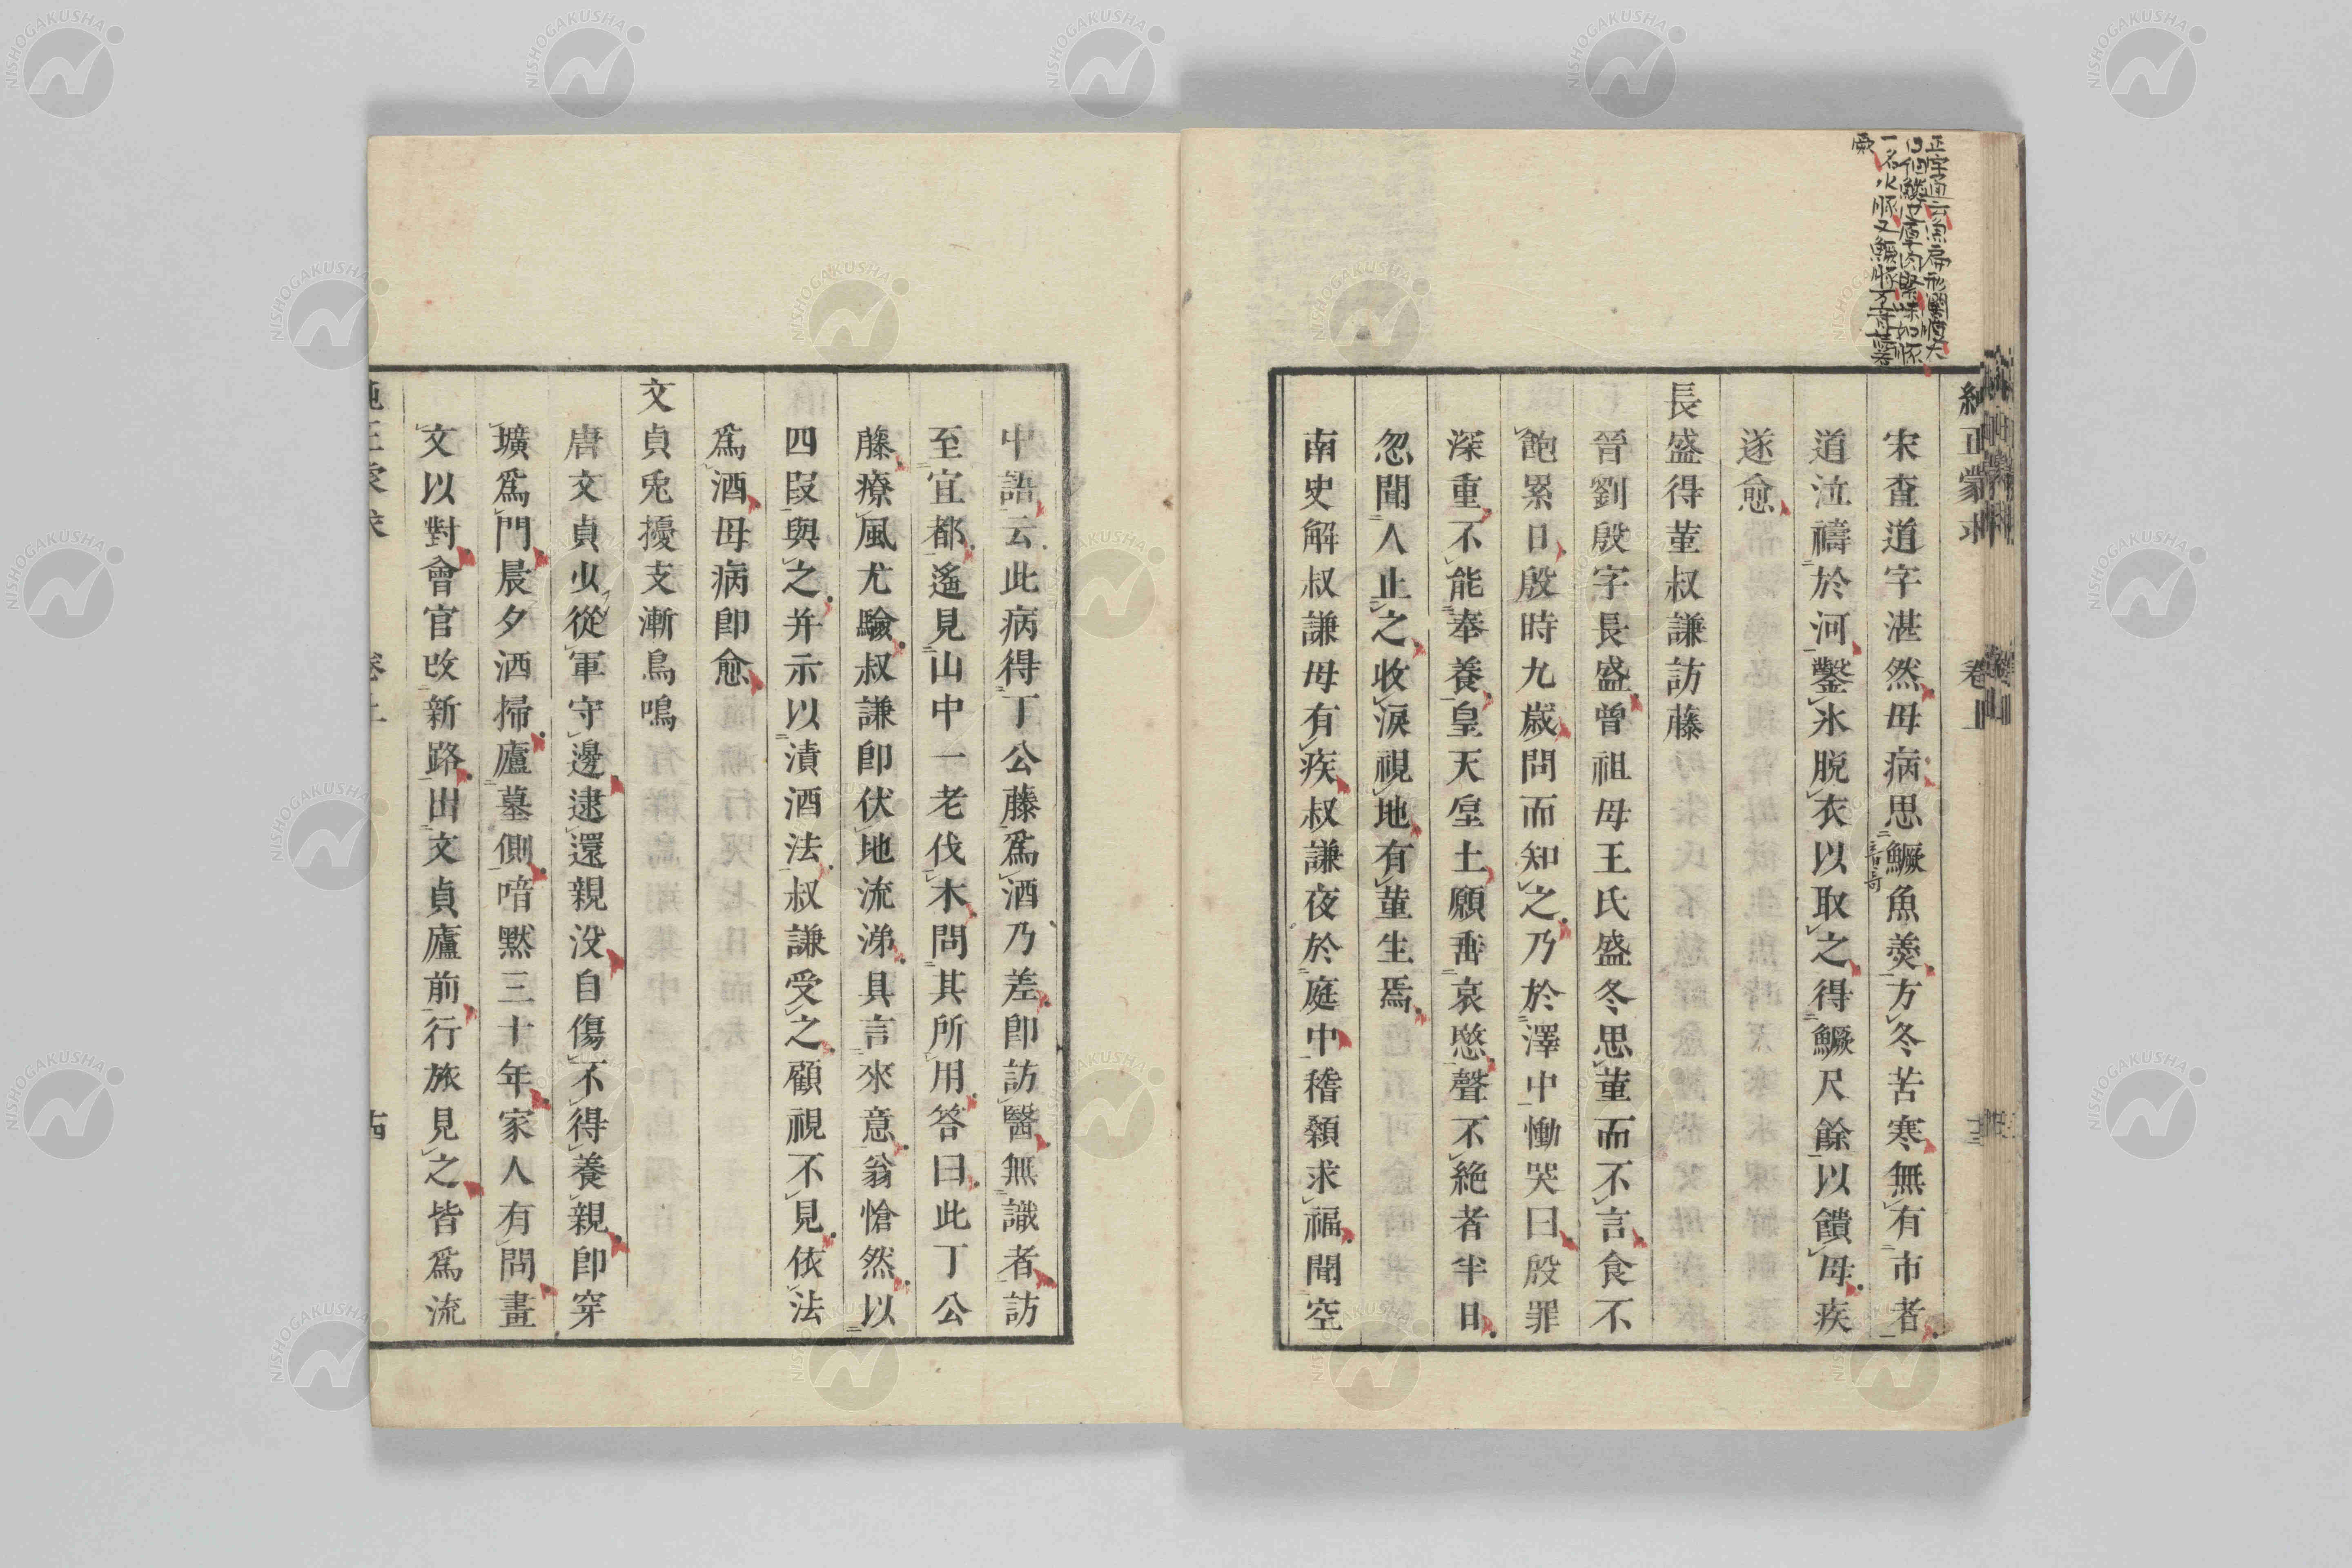 正字通云魚扁形闊腹大
口細鱗皮厚肉緊味如豚
一名水豚又鱖豚
厥
純正蒙求 卷上 十三
宋査道字湛然母病思鱖魚羮方冬苦寒無有市者
道泣禱於河鑿氷脫衣以取之得鱖尺餘以饋母疾
遂愈
長盛得菫叔謙訪藤
晉劉殷字長盛曾祖母王氏盛冬思菫而不言食不
飽累日殷時九歲問而知之乃於澤中慟哭曰殷罪
深重不能奉養皇天皇土願垂哀愍聲不絶者半日
忽聞人止之收淚視地有菫生焉
南史解叔謙母有疾叔謙夜於庭中稽顙求福聞空
中語云此病得丁公藤爲酒乃差卽訪醫無識者訪
至宜都遙見山中一老伐木問其所用答曰此丁公
藤療風尤驗叔謙卽伏地流涕具言來意翁愴然以
四段與之并示以漬酒法叔謙受之顧視不見依法
爲酒母病卽愈
文貞兎擾支漸鳥鳴
唐文貞少從軍守邊逮還親没自傷不得養親卽穿
壙爲門晨夕洒掃廬墓側喑默三十年家人有問畫
文以對會官改新路出文貞廬前行旅見之皆爲流
純正蒙求 卷上 十四